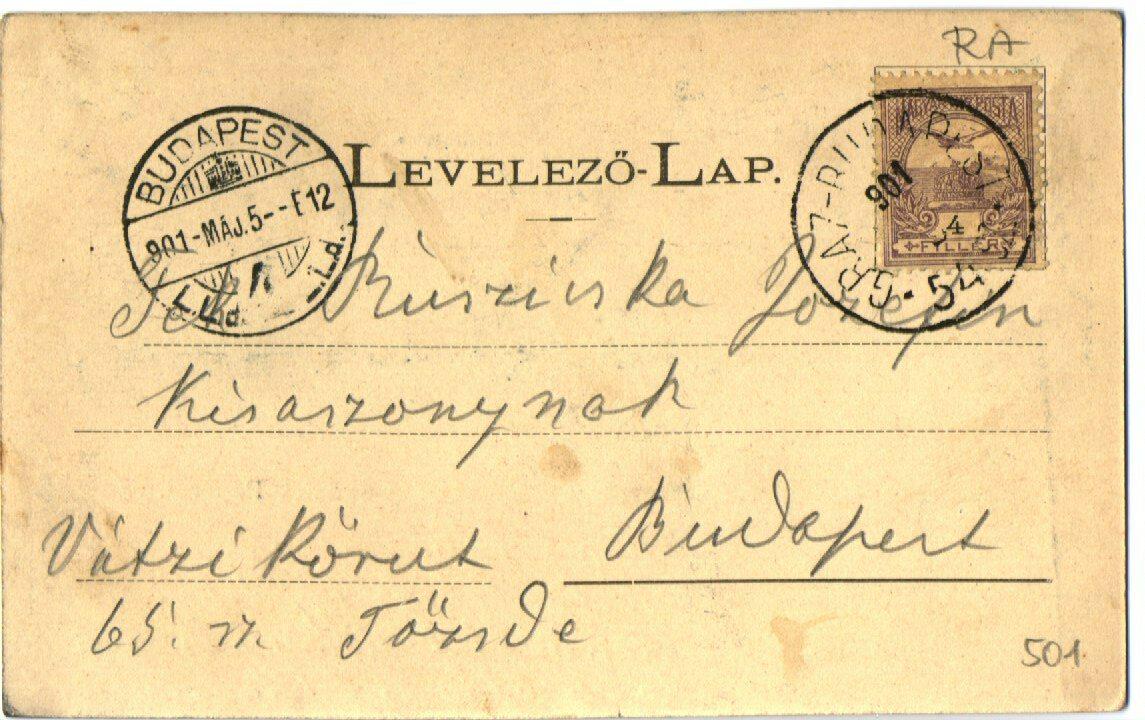 RA
LEVELEZŐ-LAP.
BUDAPEST
901-MÁJ.5--E12
MAGYAR POSTA
4
FILLÉR
GRAZ-BUDAPEST
901
54
Tek. Ruszicska Jozefin
Kisaszonynak
Vátzi Körut
Budapest
65. sz. Tőzsde
501